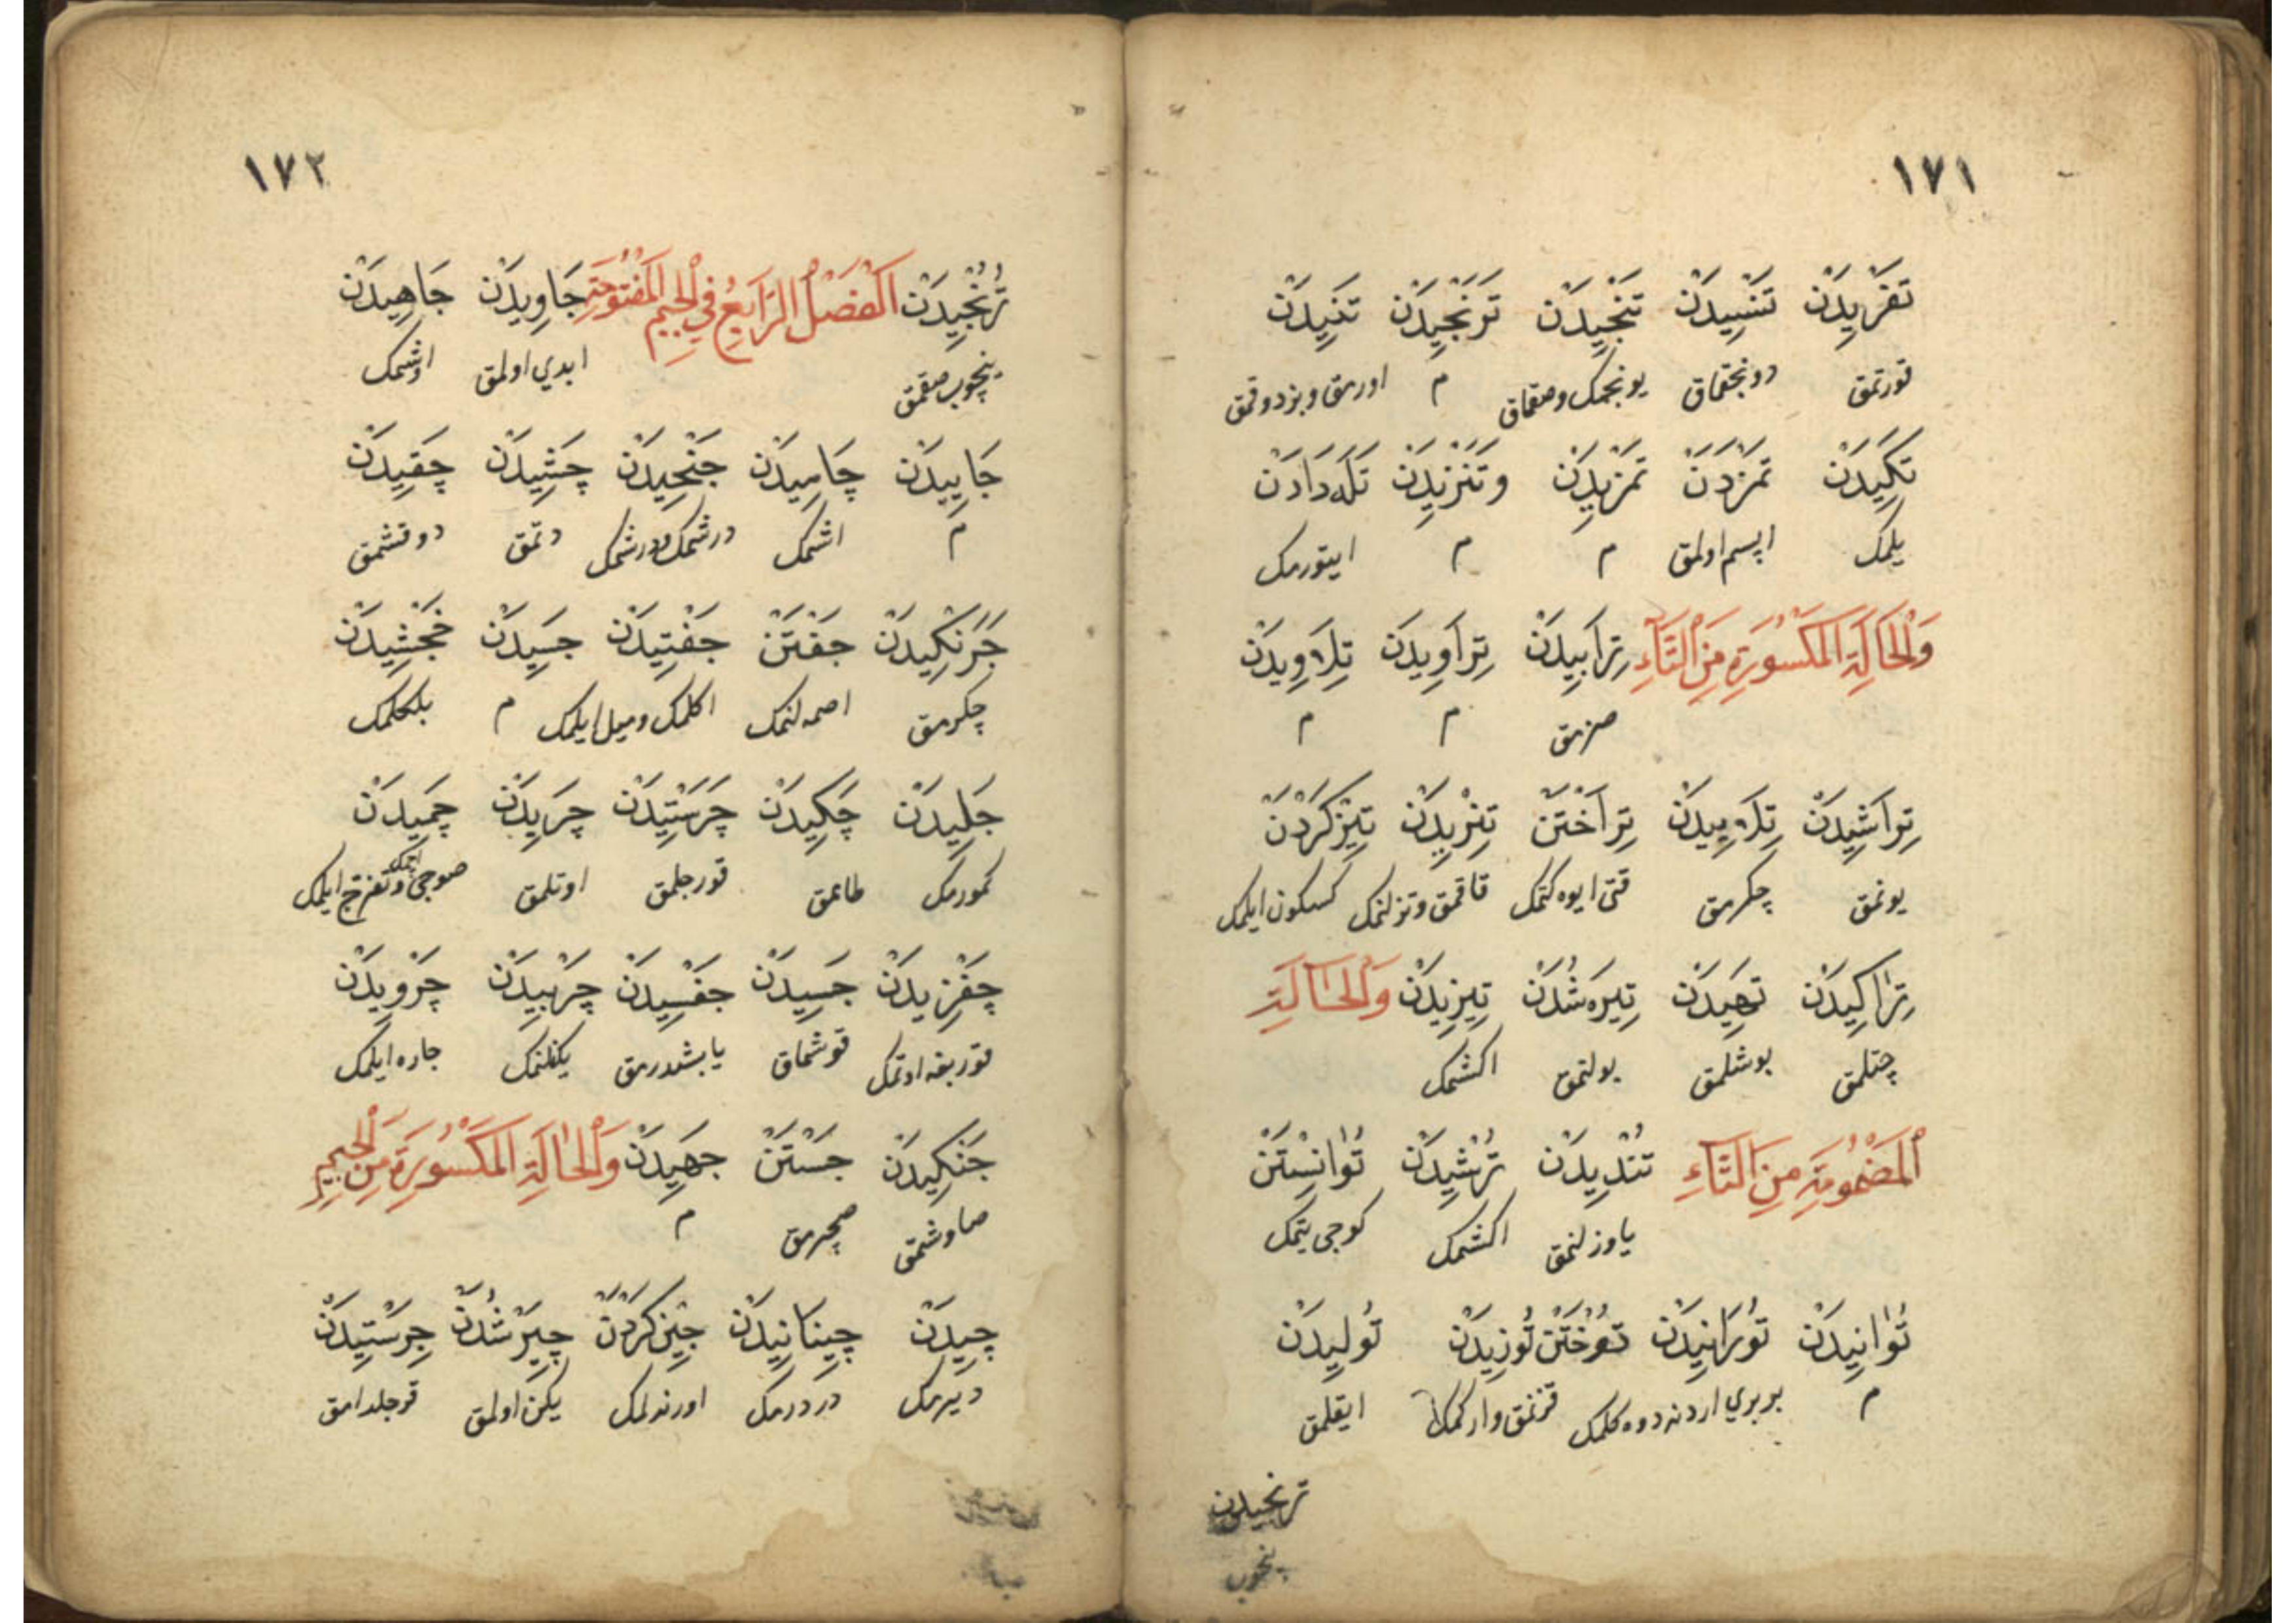 ١٧١
تَفَزِیدَنْ تَنْسِیدَنْ تَنْجِیدَنْ تَوَنْجِیدَنْ تَنِیدَنْ
قورتمق دونجقماق یونجمك وصقماق م اورمق وبزدوقمق
تَكِیدَنْ تَمَزْدَنْ تَمْزِیدَنْ وتَنْزِیدَنْ تَلَه دَادَنْ
یلمك اپسم اولمق م م ایتورمك
وَالْحَالَةِ الْمَكْسُورَةِ مِنَ التَّاءِ تِرَابِیدَنْ تِرَاوِیدَنْ تِلَاوِیدَنْ
صزمق م م
تِرَاشِیدَنْ تِلَابِیدَنْ تِرَاخْتَنْ تِنْزِیدَنْ تِیزْكَرْدَنْ
یونمق چكرمق قتی ایوه كتمك قاقمق وتزلنمك كسكون ایلمك
تِرَاكِیدَنْ تَهِیدَنْ تِیرَه شُدَنْ تِیزِیدَنْ وَالْحَالَةِ
چتلمق بوشلمق بولنمق اكشمك
الْمَضْمُومَةِ مِنَ التَّاءِ تُنْدِیدَنْ تُرْشِیدَنْ تُوَانِسْتَنْ
یاوزلنمق اكشمك كوجی یتمك
تُوَانِیدَنْ تُورَانِیدَنْ تُوخْتَنْ تُوزِیدَنْ تُولِیدَنْ
م بربری اردنه دوه كلمك قزنمق واركمك ایقلمق
ترنجیدن
ینجوب
١٧٢
تُرُنْجِیدَنْ اَلْفَصْلُ الرَّابِعُ فِی الْجِیمِ الْمَفْتُوحَةِ جَاوِیدَنْ جَاهِیدَنْ
ینچوب صقمق ابدی اولمق اوشمك
جَایِیدَنْ چَامِیدَنْ جَنْجِیدَنْ چَشِیدَنْ چَقِیدَنْ
م اشمك درشمك ودرشمك دتمق دوقشمق
جَرَنْكِیدَنْ جَفْتَنْ جَفْتِیدَنْ جَسِیدَنْ خَجْشِیدَنْ
چكرمق اصمه لنمك اكلمك ومیل ایلمك م بلكحلمك
جَلِیدَنْ چَكِیدَنْ چَرَسْتِیدَنْ چَرِیدَنْ چَمِیدَنْ
كمورمك طامق قورجلمق اوتلمق صوجی ایچمك وتفرّج ایلمك
چَغْزِیدَنْ جَسِیدَنْ جَفْسِیدَنْ چَرْبِیدَنْ چَرْوِیدَنْ
قوربغه اوتمك قوشماق یابشدرمق یكنلنمك جاره ایلمك
جَنْكِیدَنْ جَسْتَنْ جَهِیدَنْ وَالْحَالَةِ الْمَكْسُورَةِ مِنَ الْجِیمِ
صاوشمق صچرمق م
چِیدَنْ چِینَانِیدَنْ جِیْن كَرْدَنْ چِیرْ شُدَنْ جِرِسْتِیدَنْ
دیرمك دردرمك اورندلمك یكن اولمق قرجلدامق